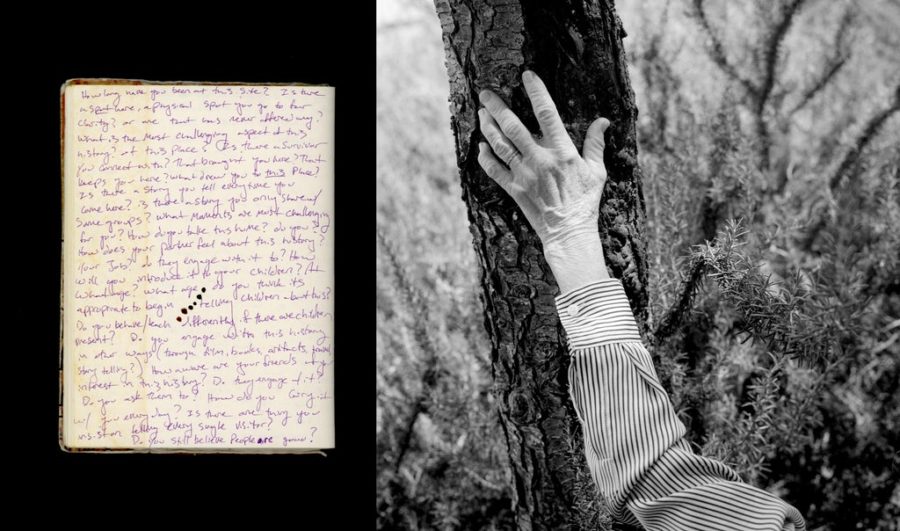 How long have you been at this site? Is there
a spot here, a physical spot you go to for
clarity? or one that was never offered any?
What is the most challenging aspect of this
history? of this place? Is there a survivor
you connect with? That brought you here? That
keeps you here? What drew you to this place?
Is there a story you tell every time you
come here? is there a story you only share w/
some groups? what moments are most challenging
for you? How do you take this home? do you?
How does your partner feel about this history?
Your Job? do they engage with it to? How
will you introduce it to your children? At
what age? what age do you think its
appropriate to begin telling children about this?
Do you behave/teach differently if there are children
present? Do you engage with this history
in other ways (through film, books, artifacts,
story telling?) How aware are your friends of your
interest in this history? Do they engage w/ it?
Do you ask them to? How do you carry it
w/ you every day? Is there one thing you
insist on telling every single visitor?
Do you still believe People are good?